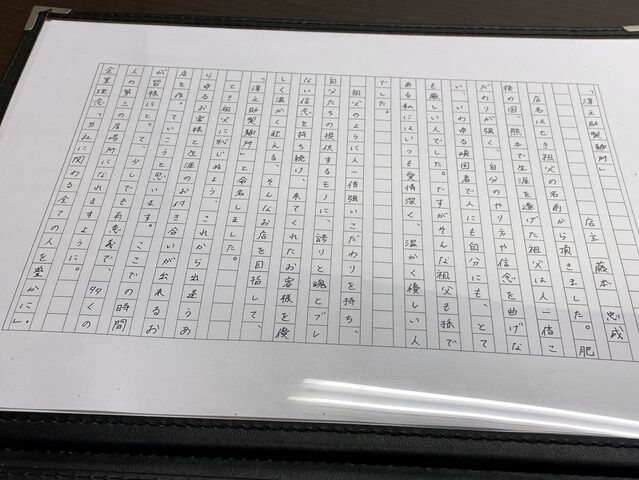 「澤之助製麺所」 店主 藤本 忠成
店名は亡き祖父の名前から頂きました。肥
後の国、熊本で生涯を遂げた祖父は人一倍こ
だわりが強く、自分のやり方や信念を曲げな
い、いわゆる頑固者で人にも自分にも、とて
も厳しい人でした。ですがそんな祖父も孫で
ある私にはいつも愛情深く、温かく優しい人
でした。
祖父のように人一倍強いこだわりを持ち、
自分たちの提供するモノに、誇りと魂とブレ
ない信念を持ち続け、来てくれたお客様を優
しく温かく迎える、そんなお店を目指して、
「澤之助製麺所」と命名しました。
亡き祖父に恥じぬよう、これから出逢うあ
らゆるお客様と生涯のお付き合いが出来るお
店を作っていこうと思います。ここでの時間
が皆様にとって、少しでも有意義で、多くの
人の第二の居場所になれますように。
企業理念「当社に関わる全ての人を豊かに」。